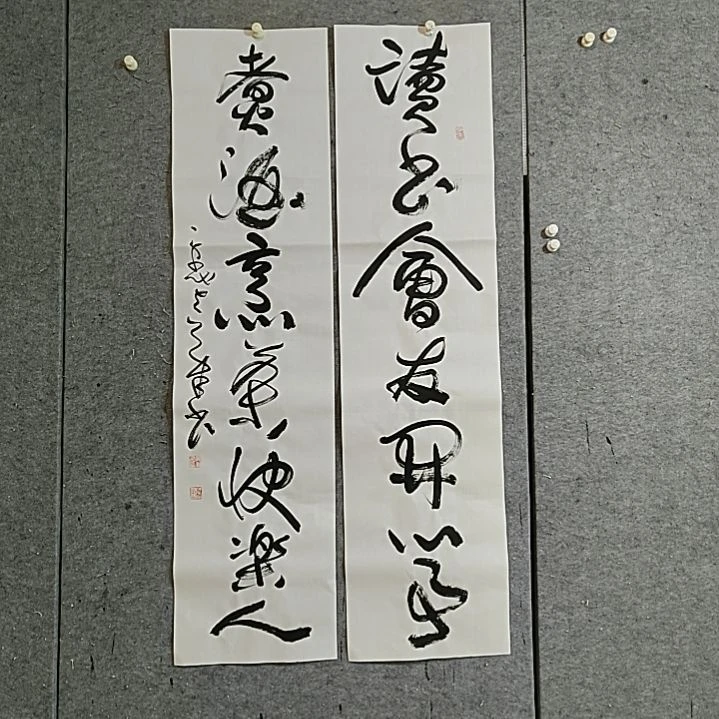 讀書會友開心事
煮酒烹茶快樂人